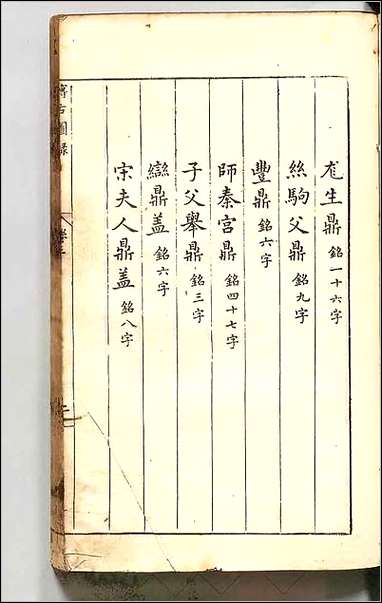 尨生鼎 銘一十六字
絲駒父鼎 銘九字
豐鼎 銘六字
師秦宮鼎 銘四十七字
子父舉鼎 銘三字
䜌鼎蓋 銘六字
宋夫人鼎蓋 銘八字
博古圖錄